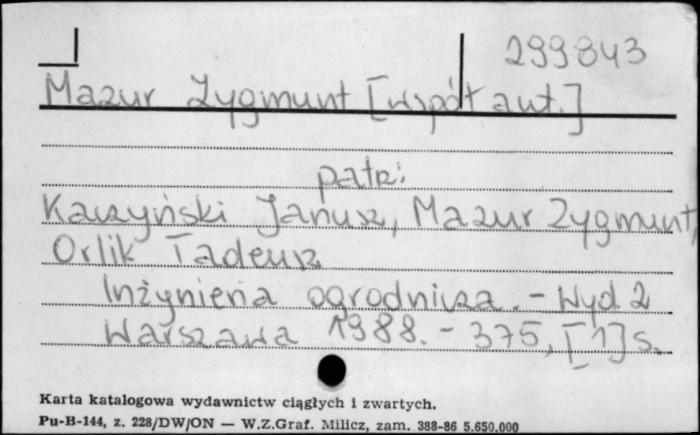 299843
Mazur Zygmunt [współaut.]
patrz:
Kaczyński Janusz, Mazur Zygmunt,
Orlik Tadeusz
Inżynieria ogrodnicza. - Wyd 2
Warszawa 1988. - 375, [1] s.
Karta katalogowa wydawnictw ciągłych i zwartych.
Pu-B-144, z. 228/DW/ON — W.Z.Graf. Milicz, zam. 388-86 5.650.000